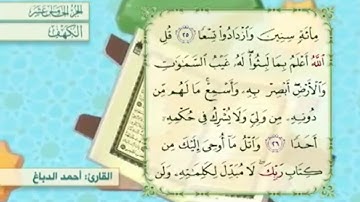 الجزء الخامس عشر
الكهف
مِائَةٍ سِنِينَ وَازْدَادُوا تِسْعًا ٢٥ قُلِ
اللَّهُ أَعْلَمُ بِمَا لَبِثُوا لَهُ غَيْبُ السَّمَاوَاتِ
وَالْأَرْضِ أَبْصِرْ بِهِ وَأَسْمِعْ مَا لَهُم مِّن
دُونِهِ مِن وَلِيٍّ وَلَا يُشْرِكُ فِي حُكْمِهِ
أَحَدًا ٢٦ وَاتْلُ مَا أُوحِيَ إِلَيْكَ مِن
كِتَابِ رَبِّكَ لَا مُبَدِّلَ لِكَلِمَاتِهِ وَلَن
القارئ: أحمد الدباغ